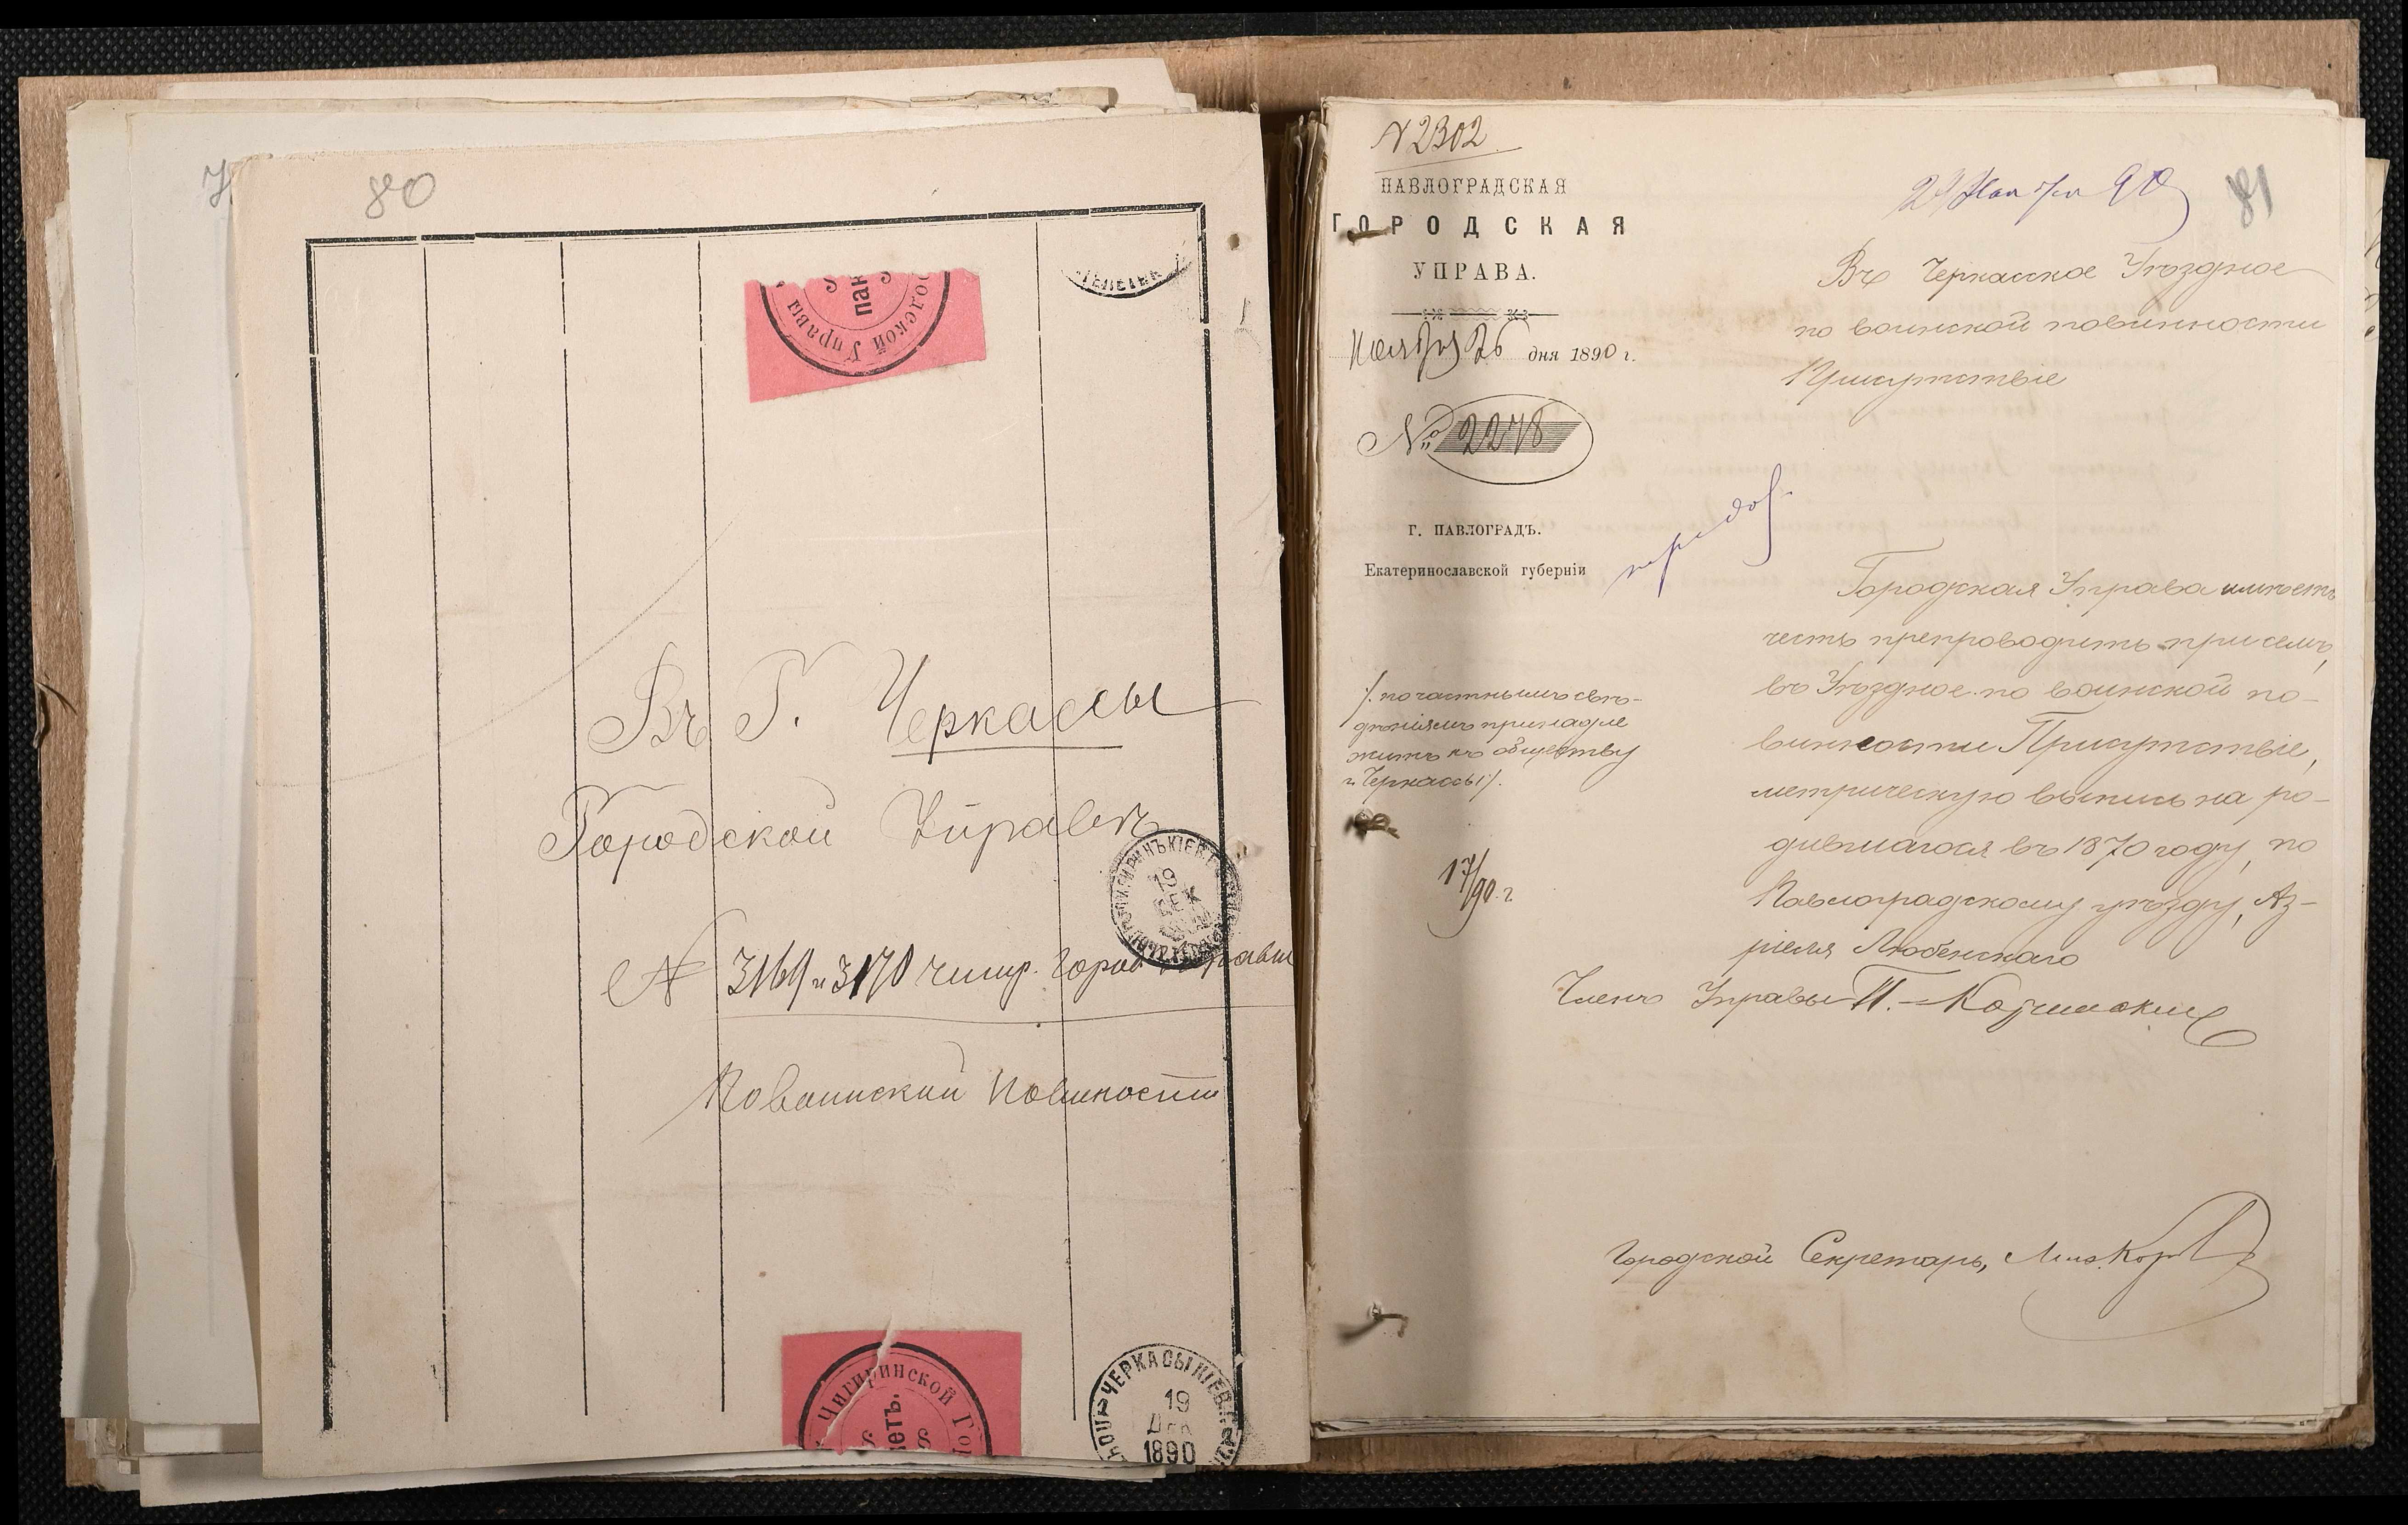 80
одской Управы
пак
Въ Г. Черкассы
Городской Управѣ
19
ДЕК
№ 3169 и 3170 чигир. город управы
По воинский повиности
Чигиринской Гор
етъ.
ЧЕРКАСЫ КІЕВ.
19
ДЕК
1890
N 2302
ПАВЛОГРАДСКАЯ
ГОРОДСКАЯ
УПРАВА.
Ноября 26 дня 1890 г.
№ 2278
Г. ПАВЛОГРАДЪ.
Екатеринославской губерніи
/. по частнымъ свѣ-
дѣніямъ принадле
житъ къ обществу
г. Черкассы /.
17/90 г.
Ноября 90
81
Въ Черкасское Уѣздное
по воинской повинности
Присутствіе
Городская Управа имѣетъ
честь препроводить при семъ,
въ Уѣздное по воинской по-
винности Присутствіе,
метрическую выпись на ро-
дившагося въ 1870 году, по
Павлоградскому уѣзду, Аз-
ріеля Любенскаго
Членъ Управы П.
Городской Секретарь,